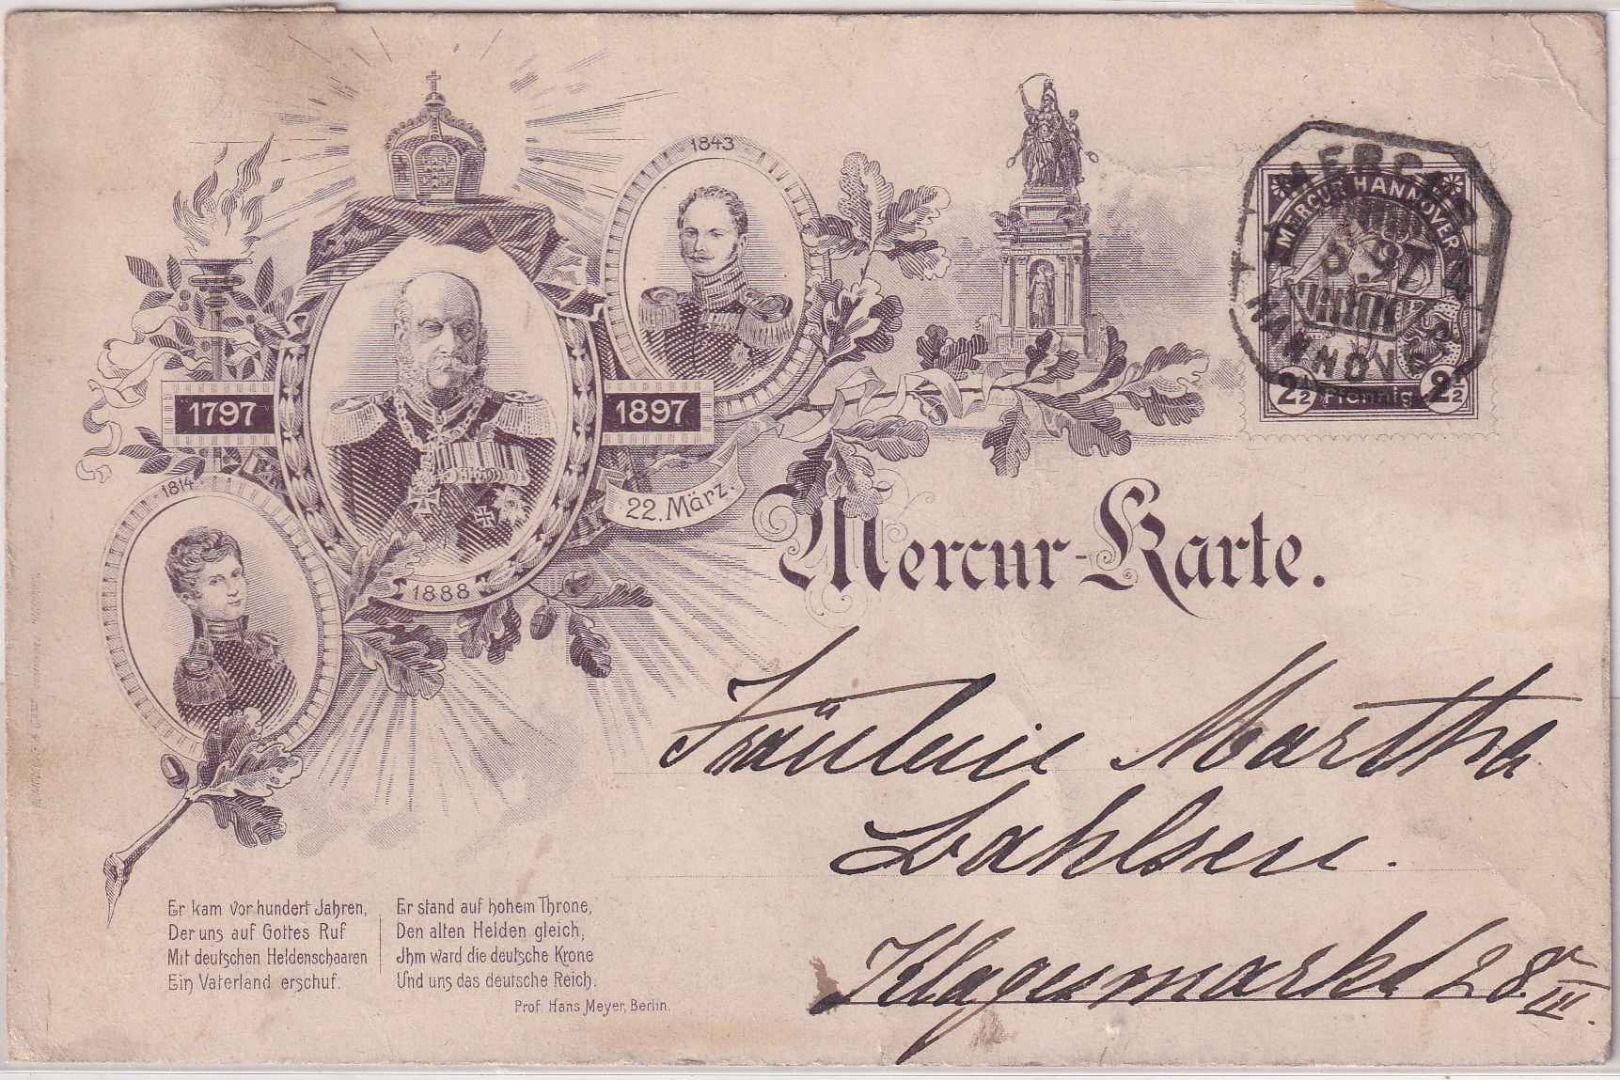 1843
MERCUR HANNOVER
HANNOVER
2½ Pfennig 2½
1797
1897
22. März.
1814
1888
Mercur-Karte.
Fräulein Martha
Bahlsen.
Klagesmarkt 28 III.
Er kam vor hundert Jahren,
Der uns auf Gottes Ruf
Mit deutschen Heldenschaaren
Ein Vaterland erschuf.
Er stand auf hohem Throne,
Den alten Helden gleich,
Ihm ward die deutsche Krone
Und uns das deutsche Reich.
Prof. Hans Meyer, Berlin.